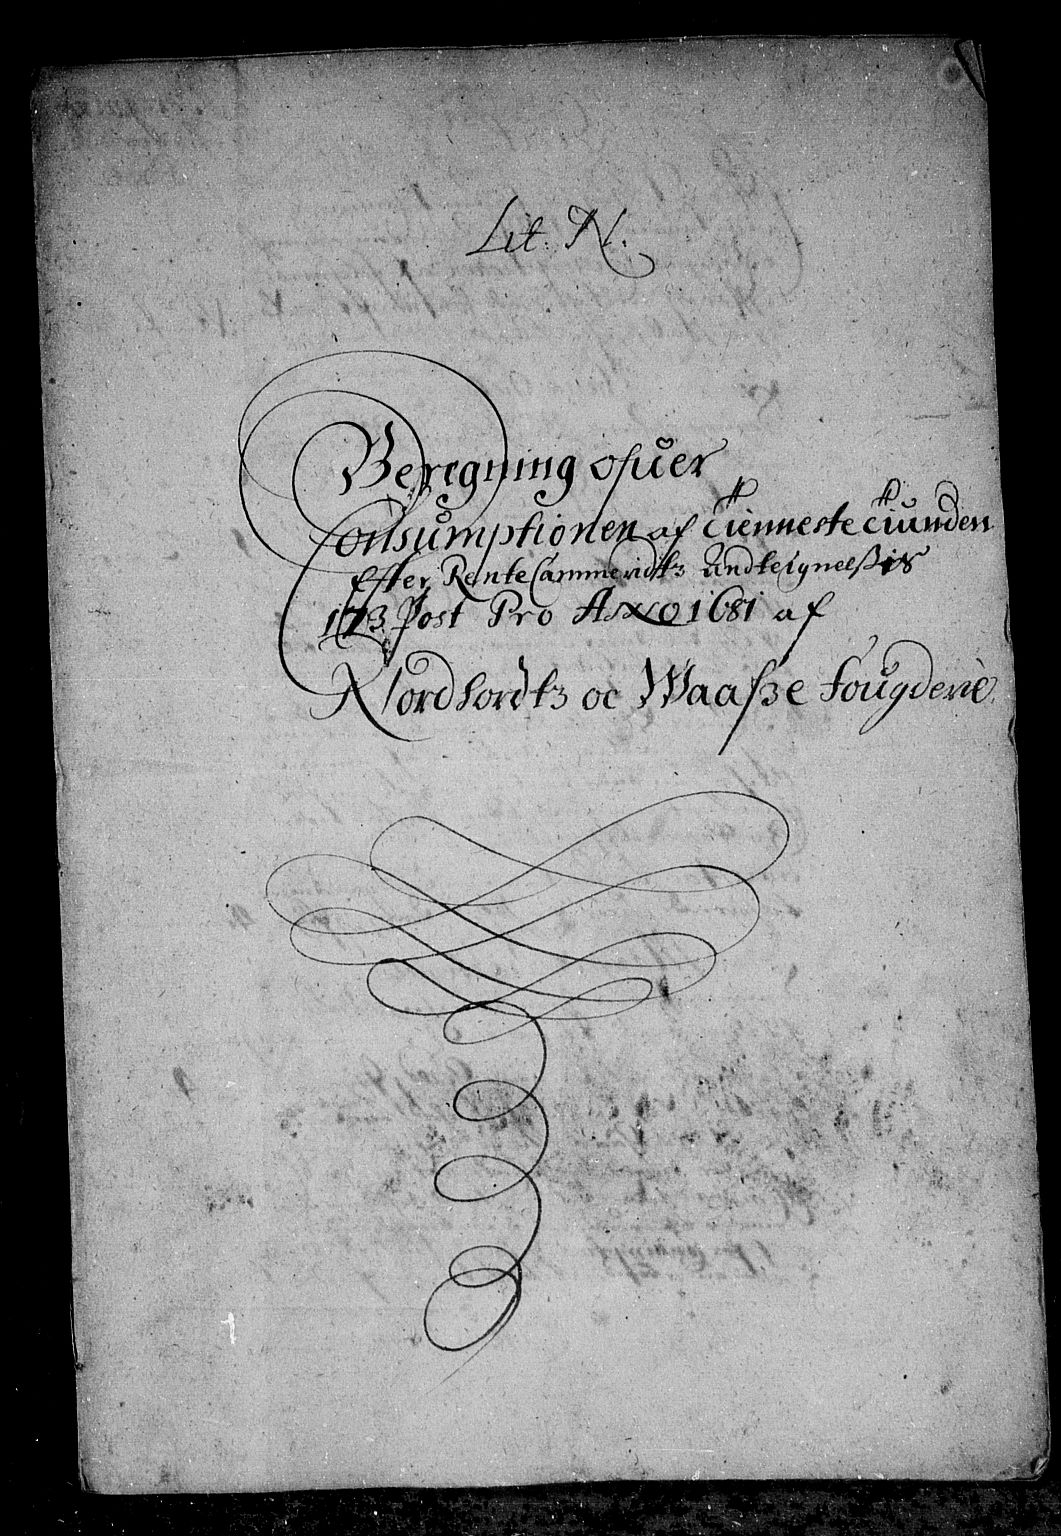 Lit: N.
Beregning ofuer
Consumptionen af Tienneste Tiunden
Efter Rente Cammeridtz Andteigneelßis
173 Post Pro Anno 1681 af
Nordhordtz oc Waasße Fougderie